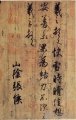 羲之頓首快雪時晴佳想
安善未果為結力不次
王羲之頓首
山陰張侯